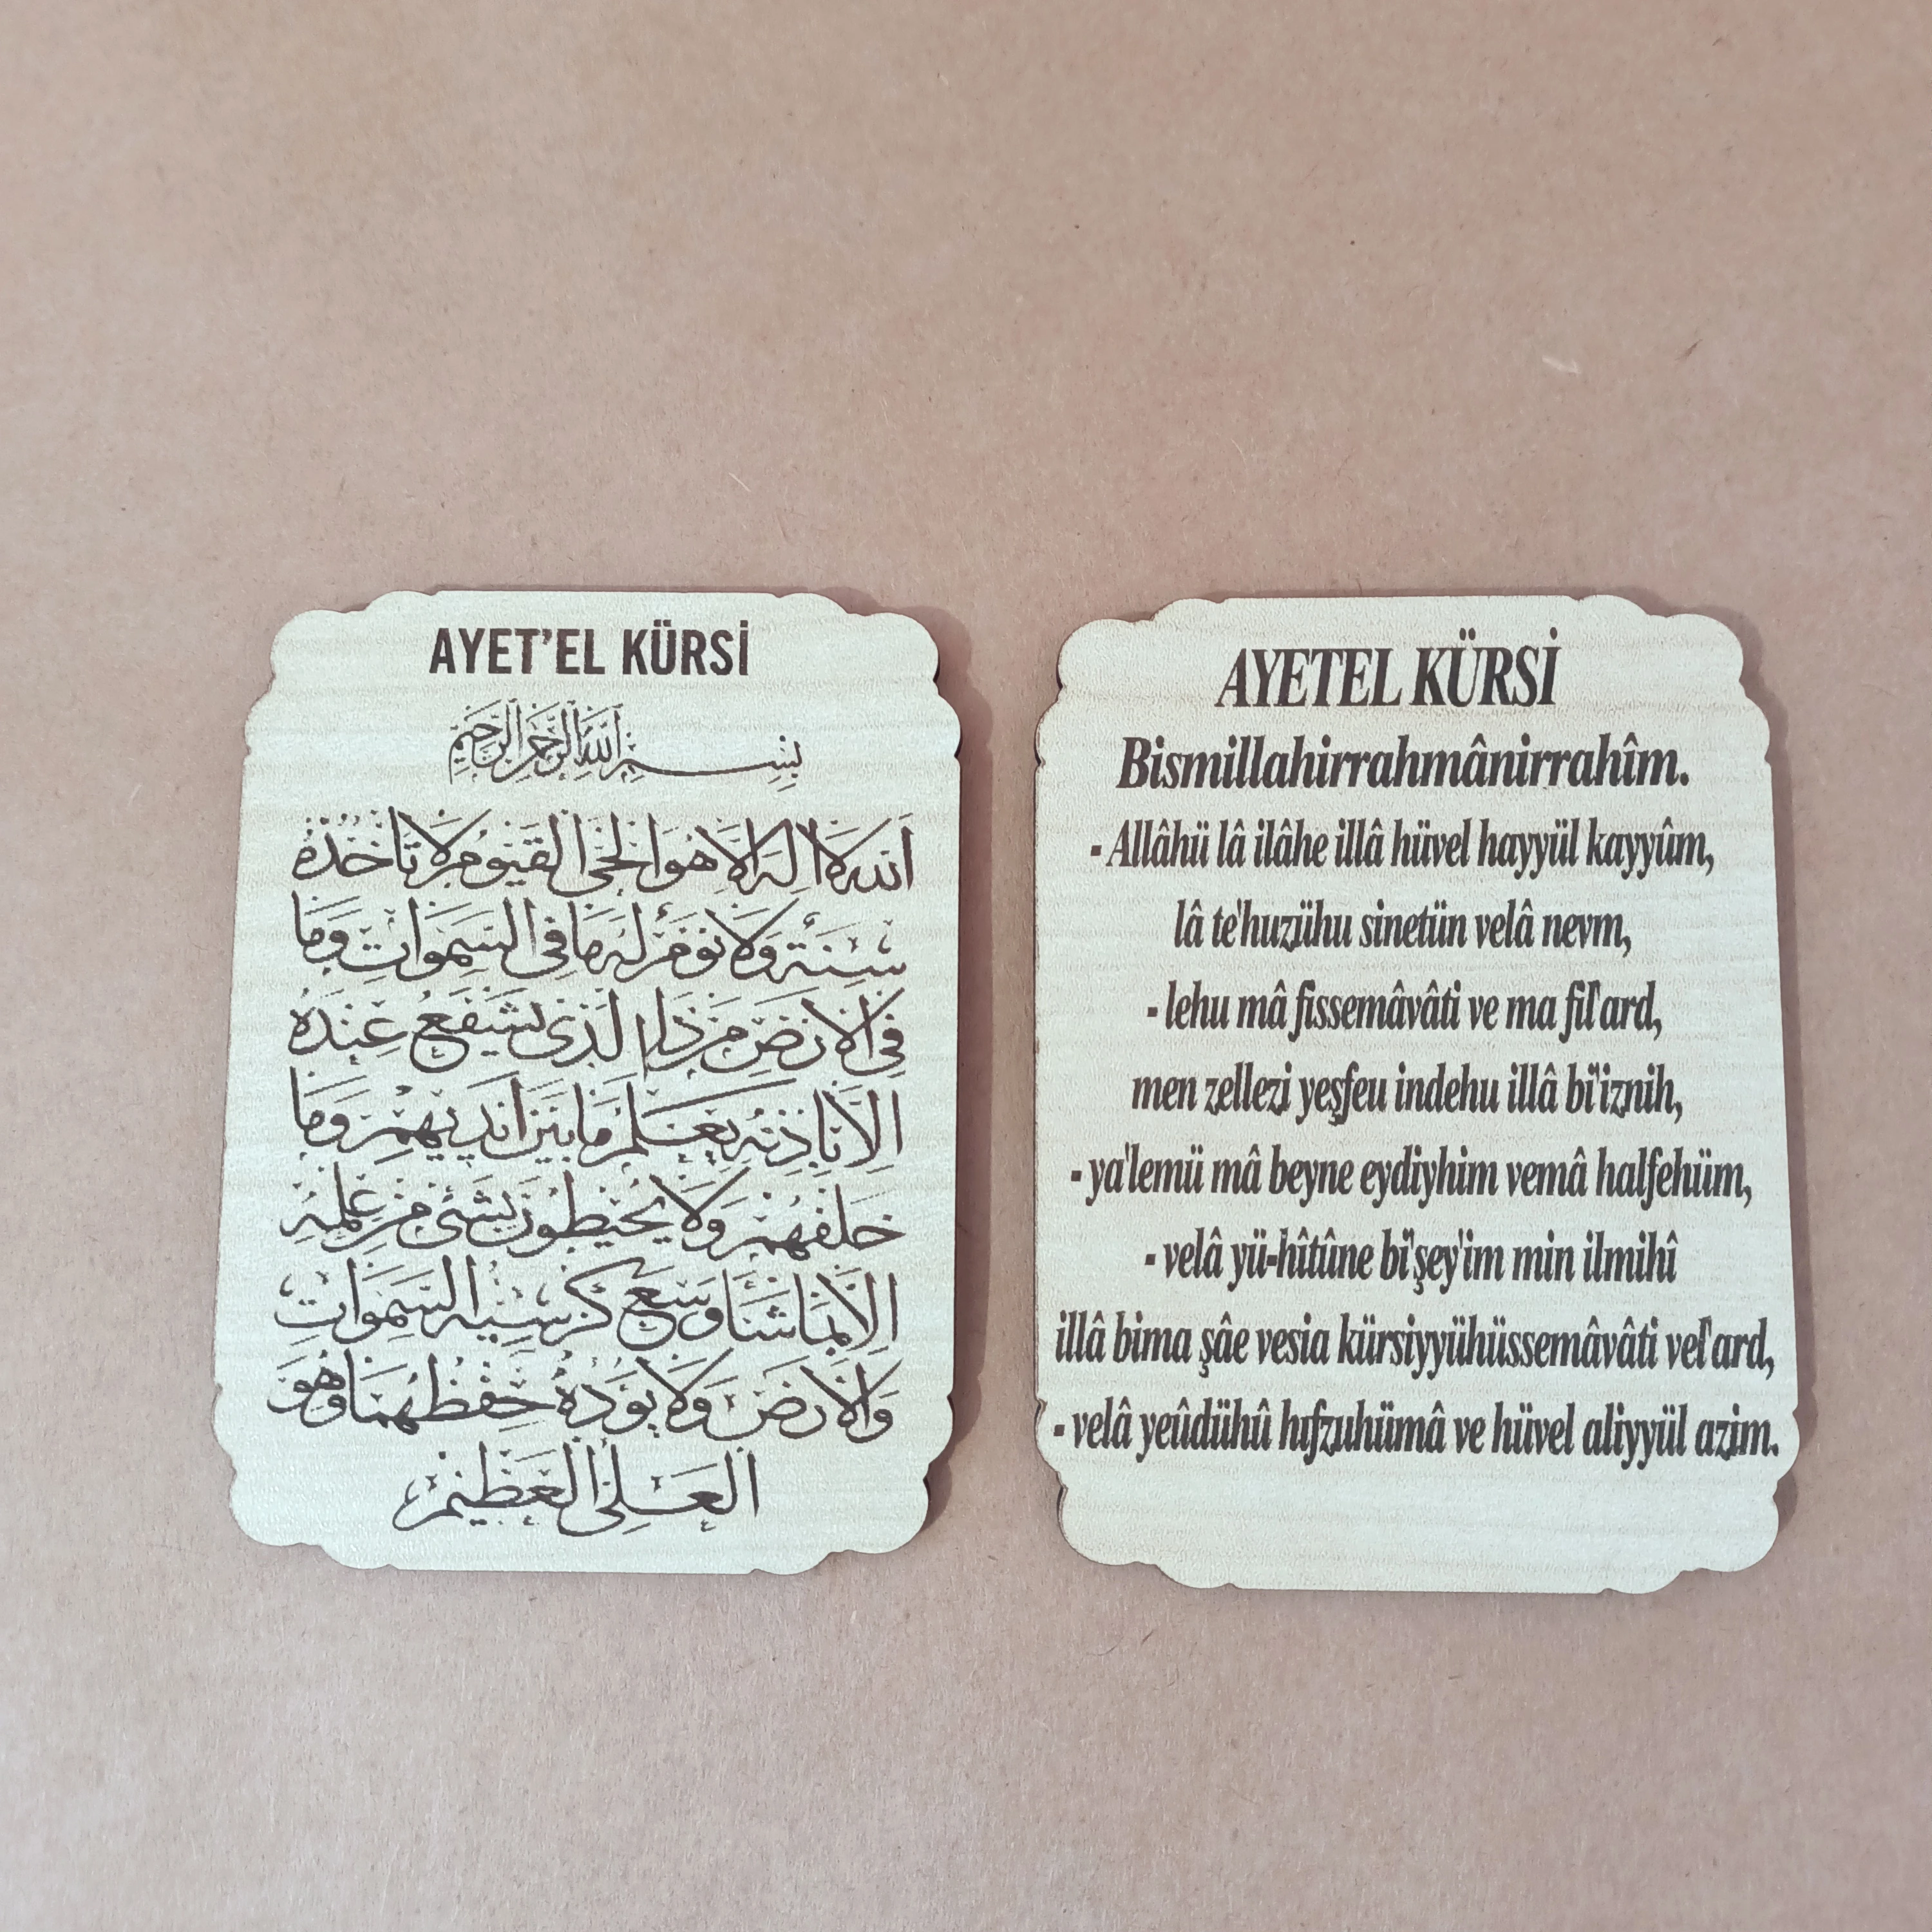 AYET'EL KÜRSİ
بِسْمِ اللهِ الرَّحْمٰنِ الرَّحِيمِ
اَللهُ لَا اِلٰهَ اِلَّا هُوَ الْحَىُّ الْقَيُّومُ لَا تَأْخُذُهُ
سِنَةٌ وَلَا نَوْمٌ لَهُ مَا فِى السَّمٰوَاتِ وَمَا
فِى الْاَرْضِ مَنْ ذَا الَّذِى يَشْفَعُ عِنْدَهُ
اِلَّا بِاِذْنِهِ يَعْلَمُ مَا بَيْنَ اَيْدِيهِمْ وَمَا
خَلْفَهُمْ وَلَا يُحِيطُونَ بِشَىْءٍ مِنْ عِلْمِهِ
اِلَّا بِمَا شَاءَ وَسِعَ كُرْسِيُّهُ السَّمٰوَاتِ
وَالْاَرْضَ وَلَا يَؤُدُهُ حِفْظُهُمَا وَهُوَ
الْعَلِىُّ الْعَظِيمُ
AYETEL KÜRSİ
Bismillahirrahmânirrahîm.
- Allâhü lâ ilâhe illâ hüvel hayyül kayyûm,
lâ te'huzühu sinetün velâ nevm,
- lehu mâ fissemâvâti ve ma fil'ard,
men zellezi yeşfeu indehu illâ bi'iznih,
- ya'lemü mâ beyne eydiyhim vemâ halfehüm,
- velâ yü-hîtûne bi'şey'im min ilmihî
illâ bima şâe vesia kürsiyyühüssemâvâti vel'ard,
- velâ yeûdühû hıfzuhümâ ve hüvel aliyyül azim.